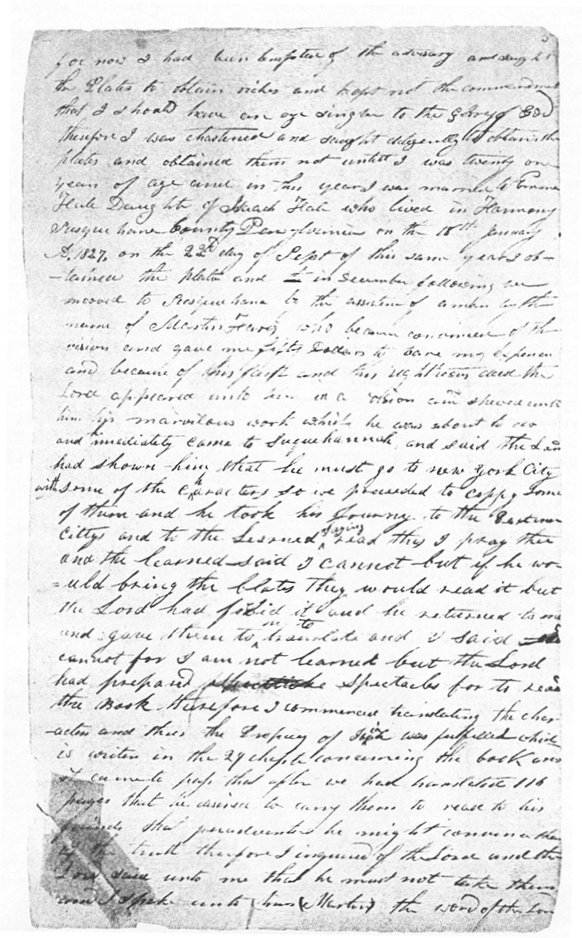 5
for now I had been tempted of the advisary and saught
the Plates to obtain riches and kept not the commandment
that I should have an eye single to the Glory of God
therefore I was chastened and saught diligently to obtain the
plates and obtained them not untill I was twenty one
years of age and in this year I was married to Emma
Hale Daughter of Isaach Hale who lived in Harmony
Susquehana County Pensylvania on the 18th January
AD. 1827, on the 22d day of Sept of this same year I ob-
-tained the plates and in December following we
mooved to Susquehana by the assistence of a man by the
name of Martin Harris who became convinced of the
vision and gave me fifty Dollars to bare my expences
and because of his faith and this righteous deed the
Lord appeared unto him in a vision and shewed unto
him his marvilous work which he was about to do
and imediately came to Suquehannah and said the Lord
had shown him that he must go to new York City
with some of the characters so we proceeded to coppy some
of them and he took his Journy to the Eastern
Cittys and to the Learned saying read this I pray thee
and the learned said I cannot but if he wo-
=uld bring the blates they would read it but
the Lord had fobid it and he returned to me
and gave them to me to translate and I said
cannot for I am not learned but the Lord
had prepared spectacles for to read
the Book therefore I commenced translating the char-
-acters and thus the Propicy of Isiah was fulfilled which
is writen in the 29 chaptr concerning the book and
it came to pass that after we had translated 116
pages that he desired to carry them to read to his
friends that peradventure he might convince them
of the truth therefore I inquired of the Lord and the
Lord said unto me that he must not take them
and I spake unto him (Martin) the word of the Lord